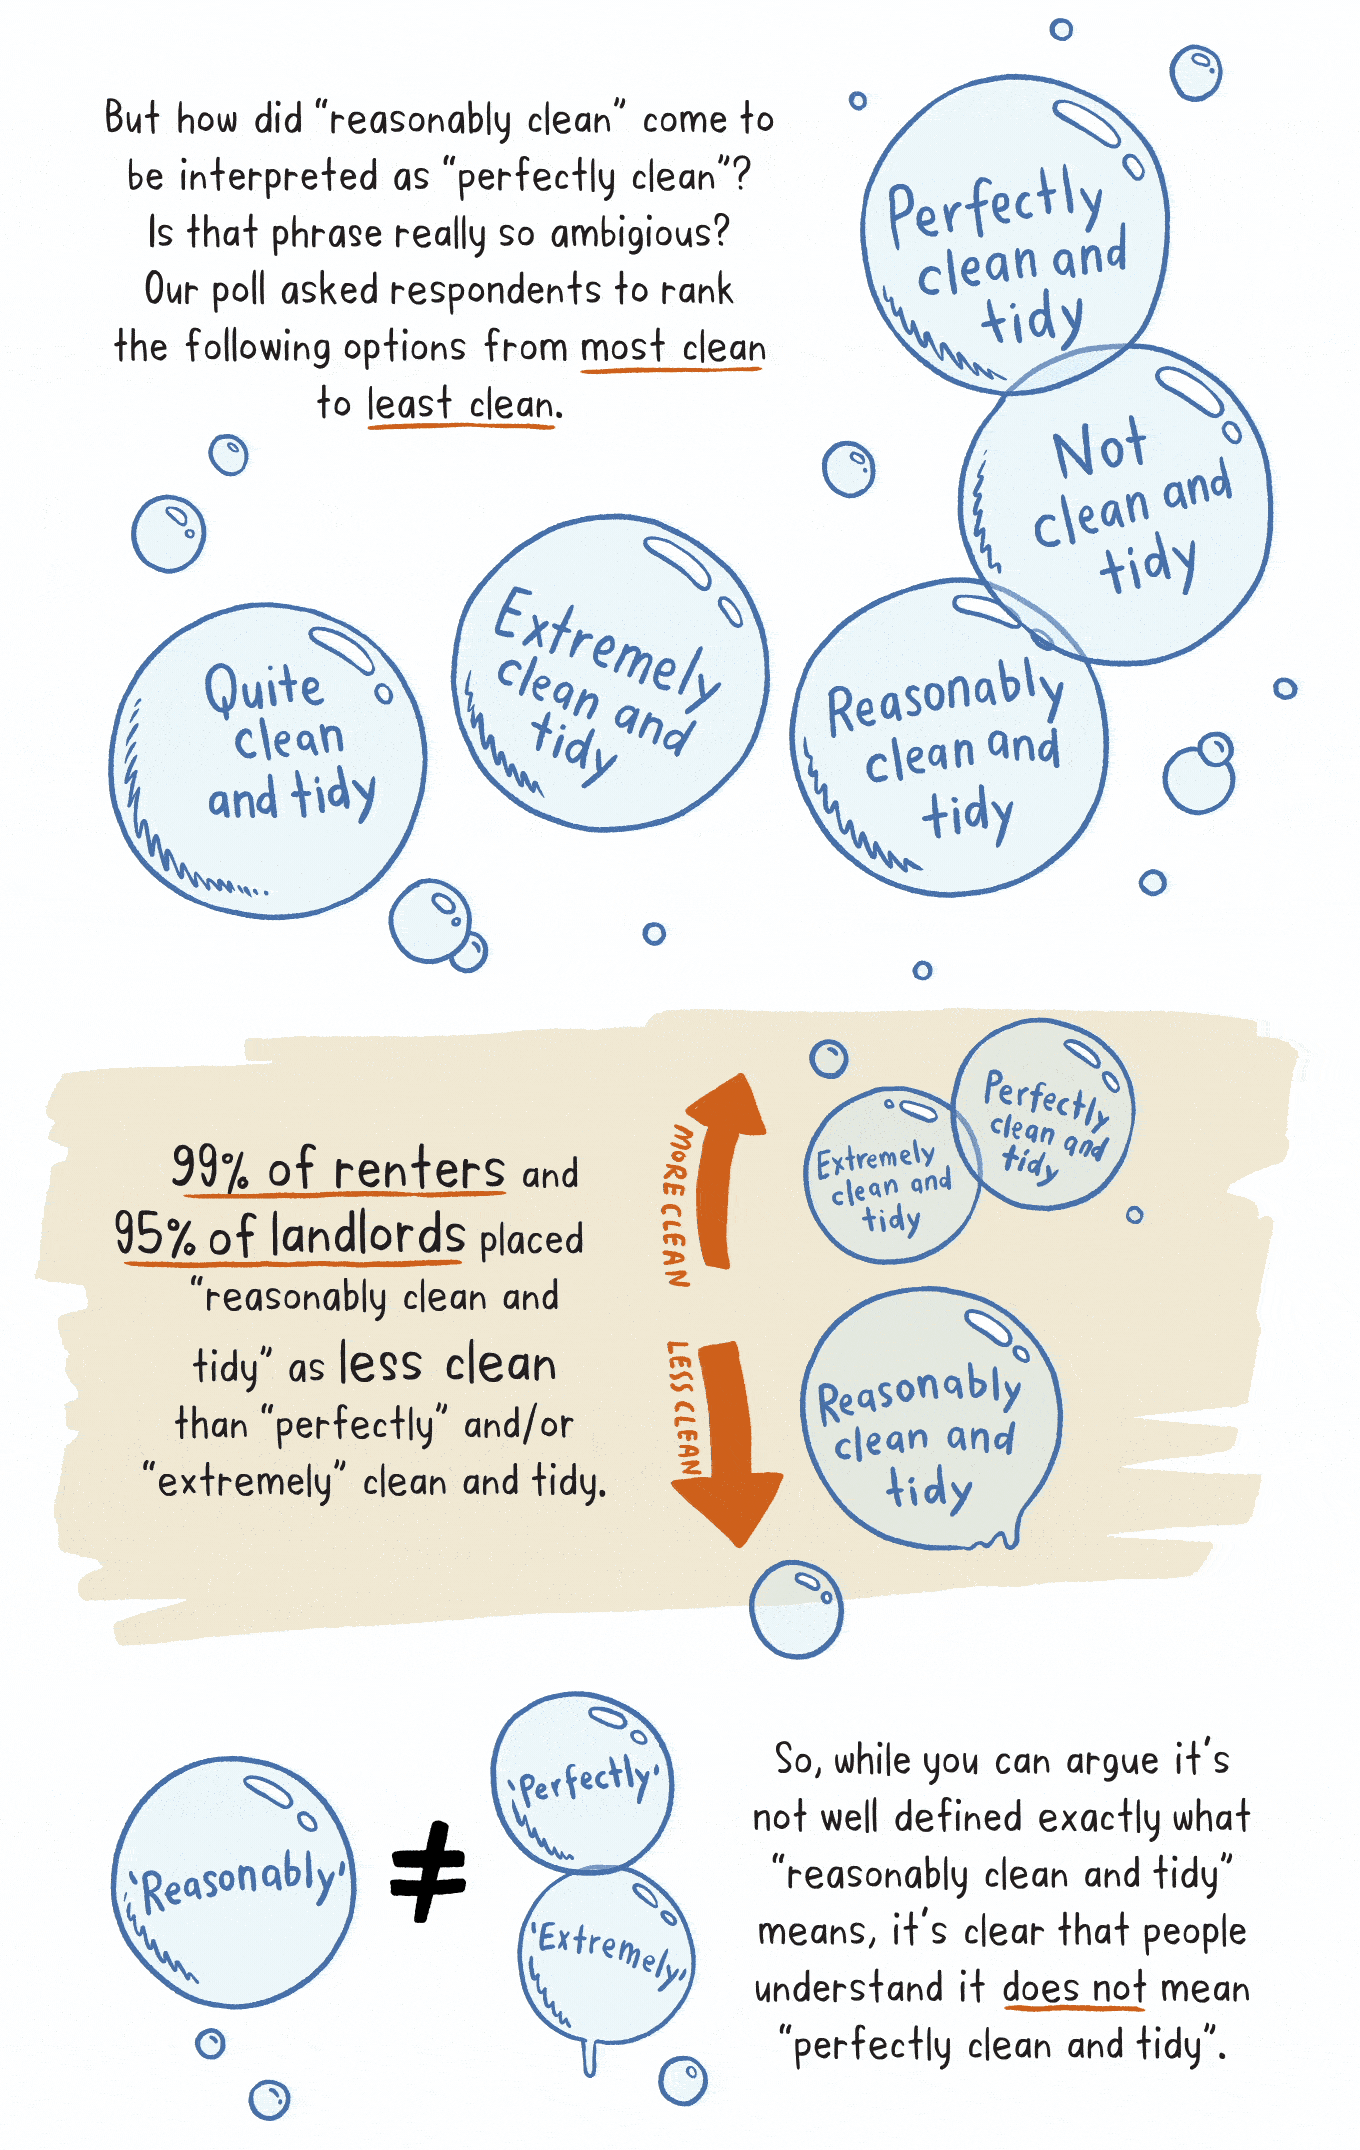 But how did “reasonably clean” come to
be interpreted as “perfectly clean”?
Is that phrase really so ambigious?
Our poll asked respondents to rank
the following options from most clean
to least clean.
Perfectly
clean and
tidy
Not
clean and
tidy
Quite
clean
and tidy
Extremely
clean and
tidy
Reasonably
clean and
tidy
99% of renters and
95% of landlords placed
“reasonably clean and
tidy” as less clean
than “perfectly” and/or
“extremely” clean and tidy.
MORE CLEAN
LESS CLEAN
Extremely
clean and
tidy
Perfectly
clean and
tidy
Reasonably
clean and
tidy
'Reasonably'
≠
'Perfectly'
'Extremely'
So, while you can argue it's
not well defined exactly what
“reasonably clean and tidy”
means, it's clear that people
understand it does not mean
“perfectly clean and tidy”.